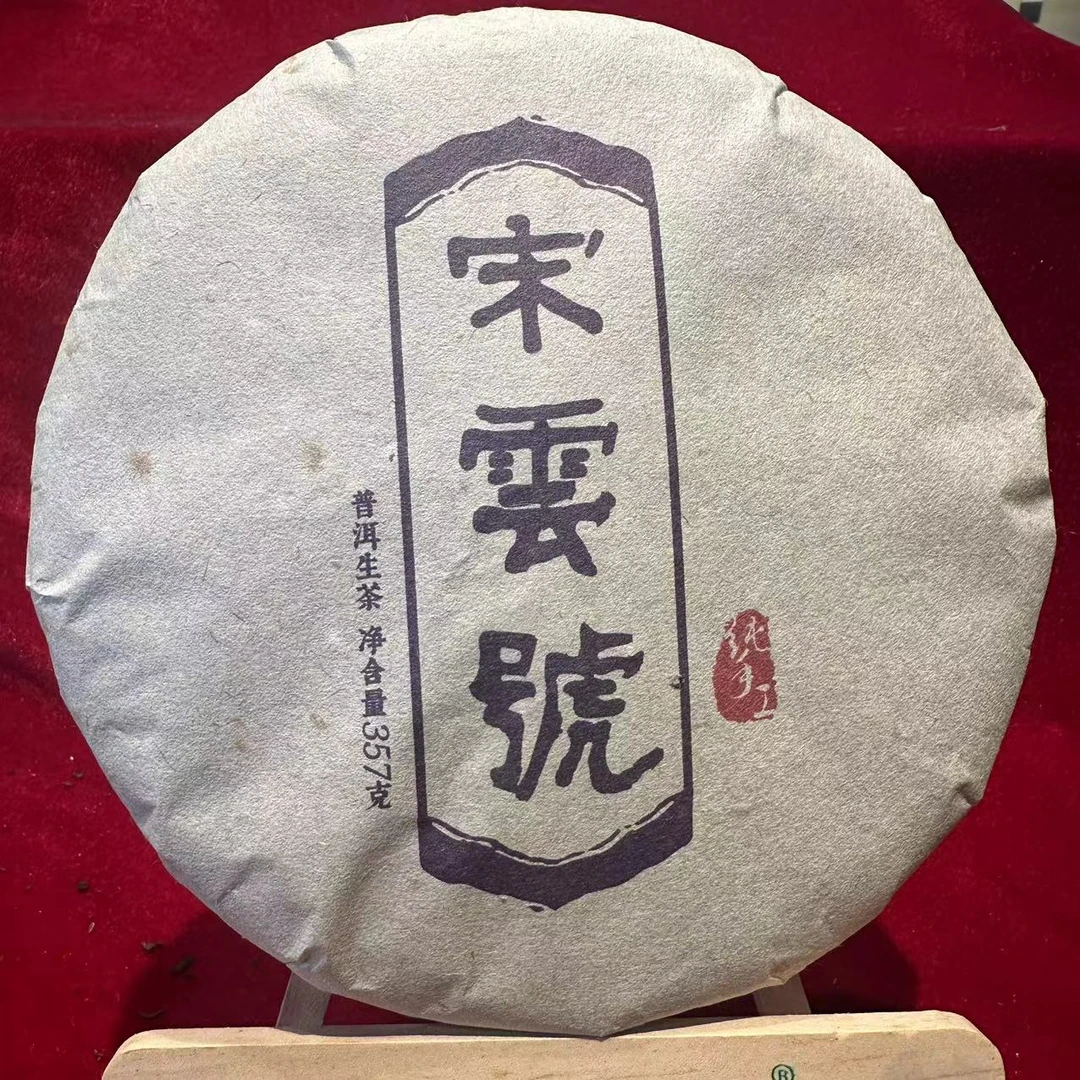 宋雲號
普洱生茶 净含量357克
纯手工
®